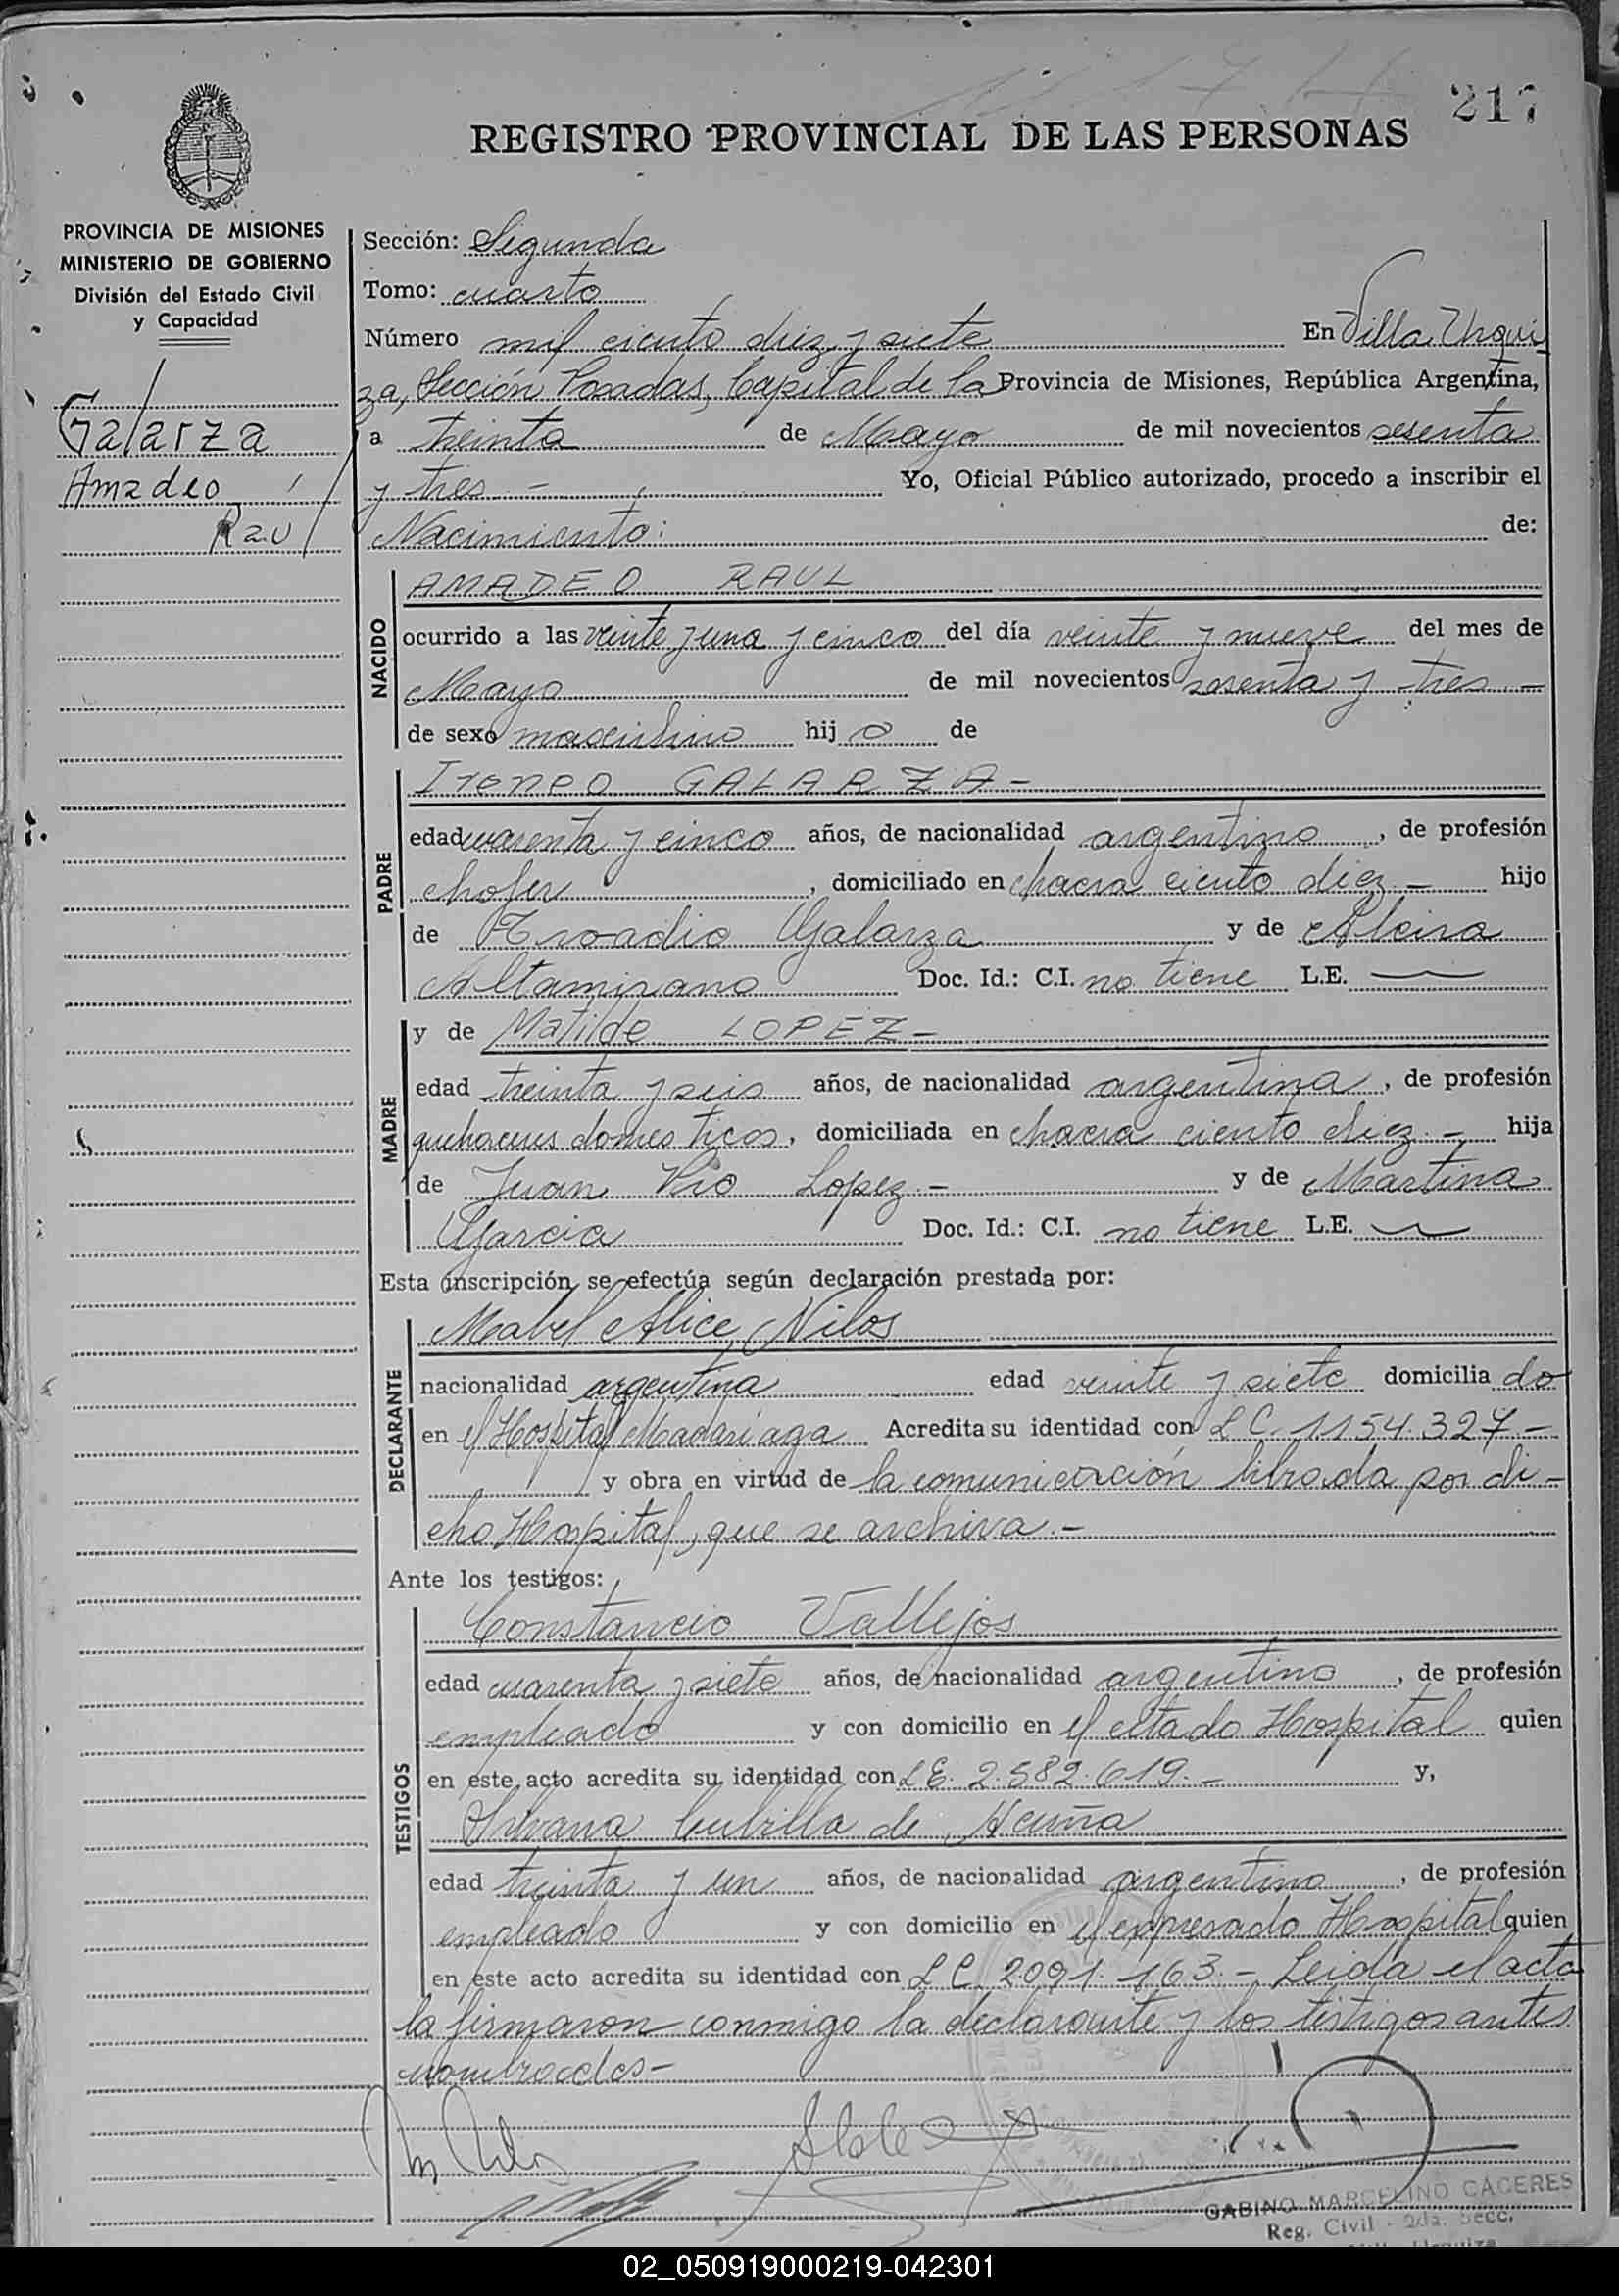 217
REGISTRO PROVINCIAL DE LAS PERSONAS
PROVINCIA DE MISIONES
MINISTERIO DE GOBIERNO
División del Estado Civil
y Capacidad
Galarza
Amadeo
Raul
Sección: Segunda
Tomo: cuarto
Número mil ciento diez y siete En Villa Urqui
za, Sección Posadas, Capital de la Provincia de Misiones, República Argentina,
a treinta de Mayo de mil novecientos sesenta
y tres - Yo, Oficial Público autorizado, procedo a inscribir el
Nacimiento: de:
NACIDO
AMADEO RAUL
ocurrido a las veinte y una y cinco del día veinte y nueve del mes de
Mayo de mil novecientos sesenta y tres -
de sexo masculino hijo de
PADRE
Ireneo GALARZA -
edad cuarenta y cinco años, de nacionalidad argentino, de profesión
chofer, domiciliado en chacra ciento diez - hijo
de Troadio Galarza y de Alcira
Altamirano Doc. Id.: C.I. no tiene L.E. —
MADRE
y de Matilde LOPEZ -
edad treinta y seis años, de nacionalidad argentina, de profesión
quehaceres domesticos, domiciliada en chacra ciento diez - hija
de Juan Pio Lopez - y de Martina
Garcia Doc. Id.: C.I. no tiene L.E. —
Esta inscripción se efectúa según declaración prestada por:
DECLARANTE
Mabel Alice Nilos
nacionalidad argentina edad veinte y siete domicilia do
en el Hospital Madariaga Acredita su identidad con L C. 1154.327 -
y obra en virtud de la comunicación librada por di-
cho Hospital, que se archiva -
Ante los testigos:
TESTIGOS
Constancio Vallejos
edad cuarenta y siete años, de nacionalidad argentino, de profesión
empleado y con domicilio en el citado Hospital quien
en este acto acredita su identidad con L E. 2.582.619 - y,
Silvana Cubilla de Acuña
edad treinta y un años, de nacionalidad argentino, de profesión
empleado y con domicilio en el expresado Hospital quien
en este acto acredita su identidad con L C. 2091.163 - Leida el acta
la firmaron conmigo la declarante y los testigos antes
nombrados -
GABINO MARCELINO CACERES
Reg. Civil - 2da. Secc.
02_050919000219-042301